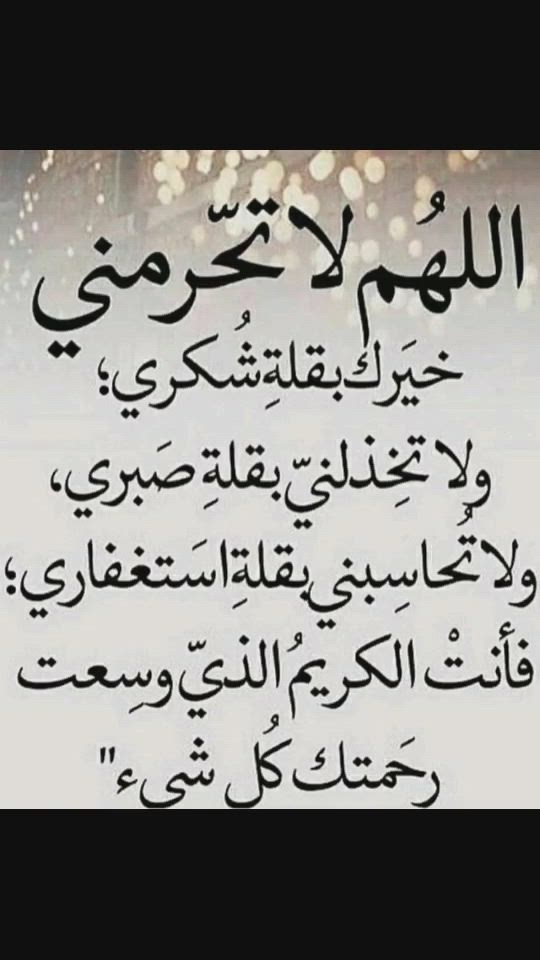 اللهُم لا تحّرمني
خيَرك بقلةِ شُكري؛
ولا تخِذلنيّ بقلةِ صَبري،
ولا تُحاسِبني بقلةِ اسَتغفاري؛
فأنتْ الكريمُ الذيّ وسِعت
رحَمتك كُل شيء"